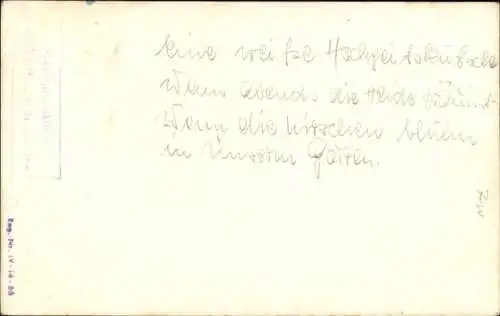 eine weiße Hochzeitskutsche
Wenn abends die Heide träumt
Wenn die Kirschen blühn
in unserm Garten.
Eng. Nr. IV-14-